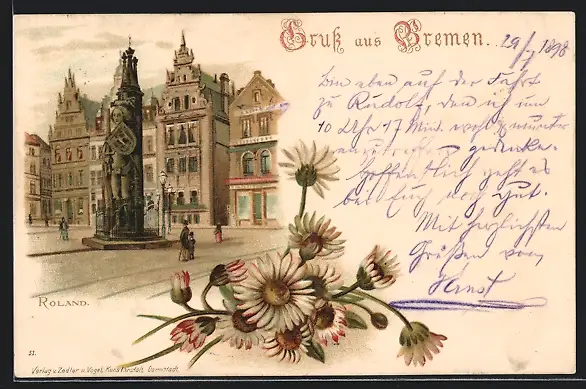 Gruß aus Bremen.
29/7 1898
Bin eben auf der Fahrt
zu Rudolf, den ich um
10 Uhr 17 Min. wohl & munter
anzutreffen gedenke.
Hoffentlich geht es
bei Euch noch gut.
Mit herzlichsten
Grüßen von
Ernst
ROLAND.
51.
Verlag v. Zedler u. Vogel, Kunstanstalt, Darmstadt.